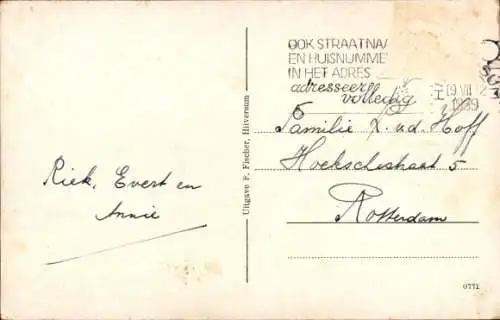 OOK STRAATNA
EN HUISNUMME
IN HET ADRES
adresseer
volledig
19 VII 12
1939
Familie L. v.d. Hoff
Hoekschestraat 5
Rotterdam
Riek, Evert en
Annie
Uitgave F. Fischer, Hilversum
0771